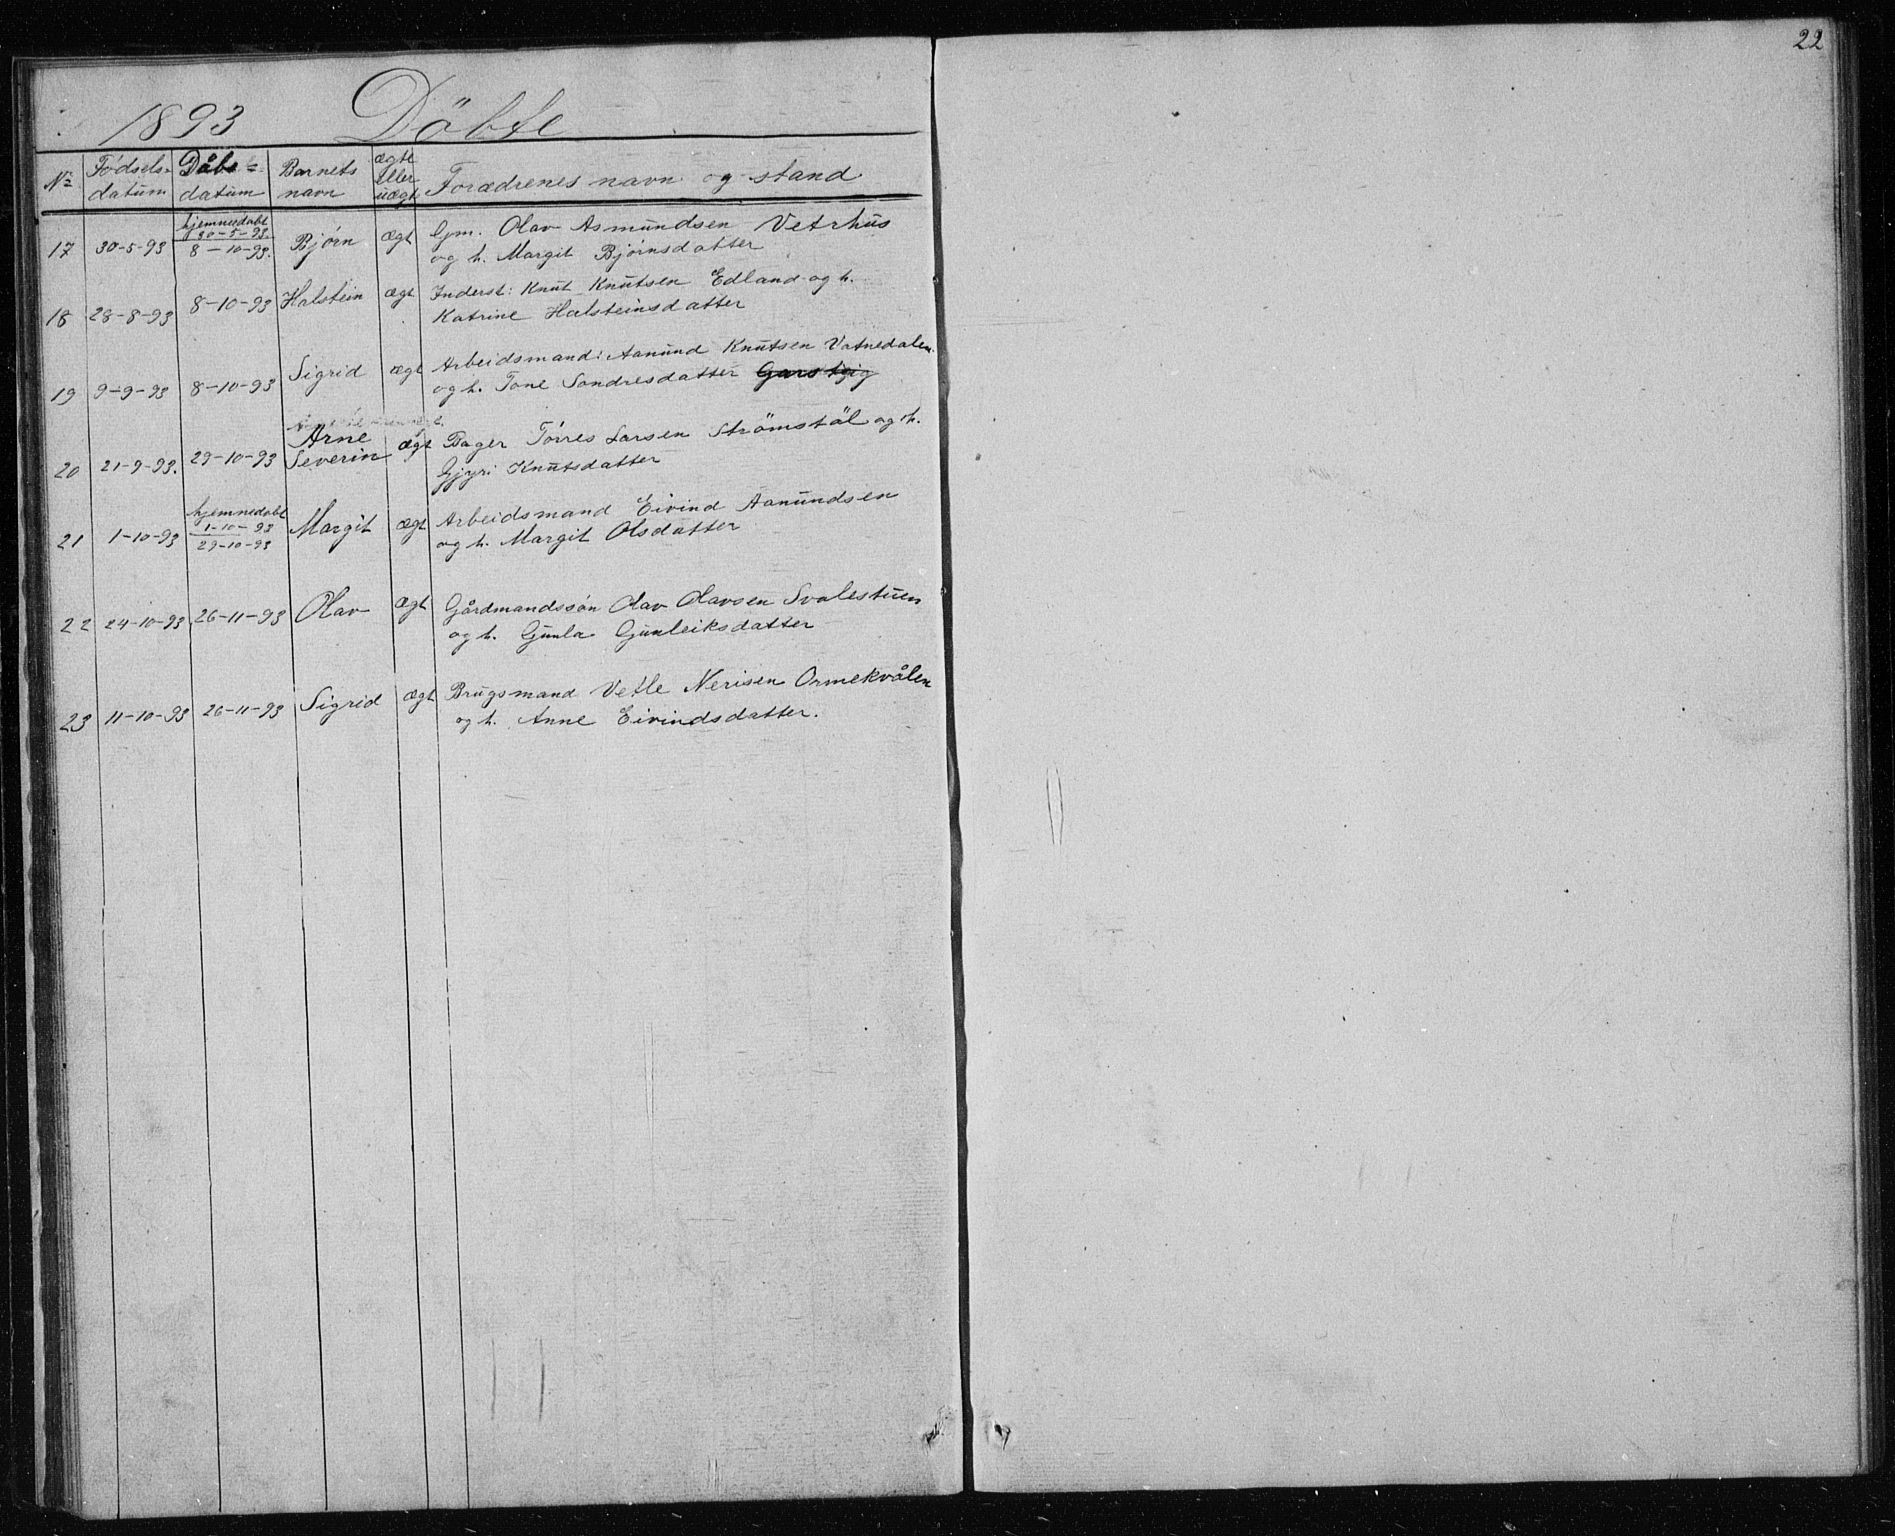 22
1893 Döbte
No Fødsels-datum Dåbs-datum Barnets navn ægte eller uægt Forædrenes navn og stand
17 30-5-93 hjemmedøbt 30-5-93. 8-10-93. Bjørn ægt Gm. Olav Asmundsen Vetrhus
og h. Margit Bjørnsdatter
18 28-8-93 8-10-93 Halstein ægt Inderst: Knut Knutsen Edland og h.
Katrine Halsteinsdatter
19 9-9-93 8-10-93 Sigrid ægt Arbeidsmand: Aanund Knutsen Vatnedalen
og h. Tone Sondresdatter
20 21-9-93. 29-10-93 Arne Severin ægt Bager Tórres Larsen Strömstöl og h.
Gjyri Knutsdatter
21 1-10-93 hjemmedøbt 1-10-93 29-10-93 Margit ægt Arbeidsmand Eivind Aanundsen
og h. Margit Olsdatter
22 24-10-93 26-11-93 Olav ægt Gårdmandssön Olav Olavsen Svalestuen
og h. Gunla Gunleiksdatter
23 11-10-93 26-11-93 Sigrid ægt Brugsmand Vetle Nerisen Ormekvålen
og h. Anne Eivindsdatter.